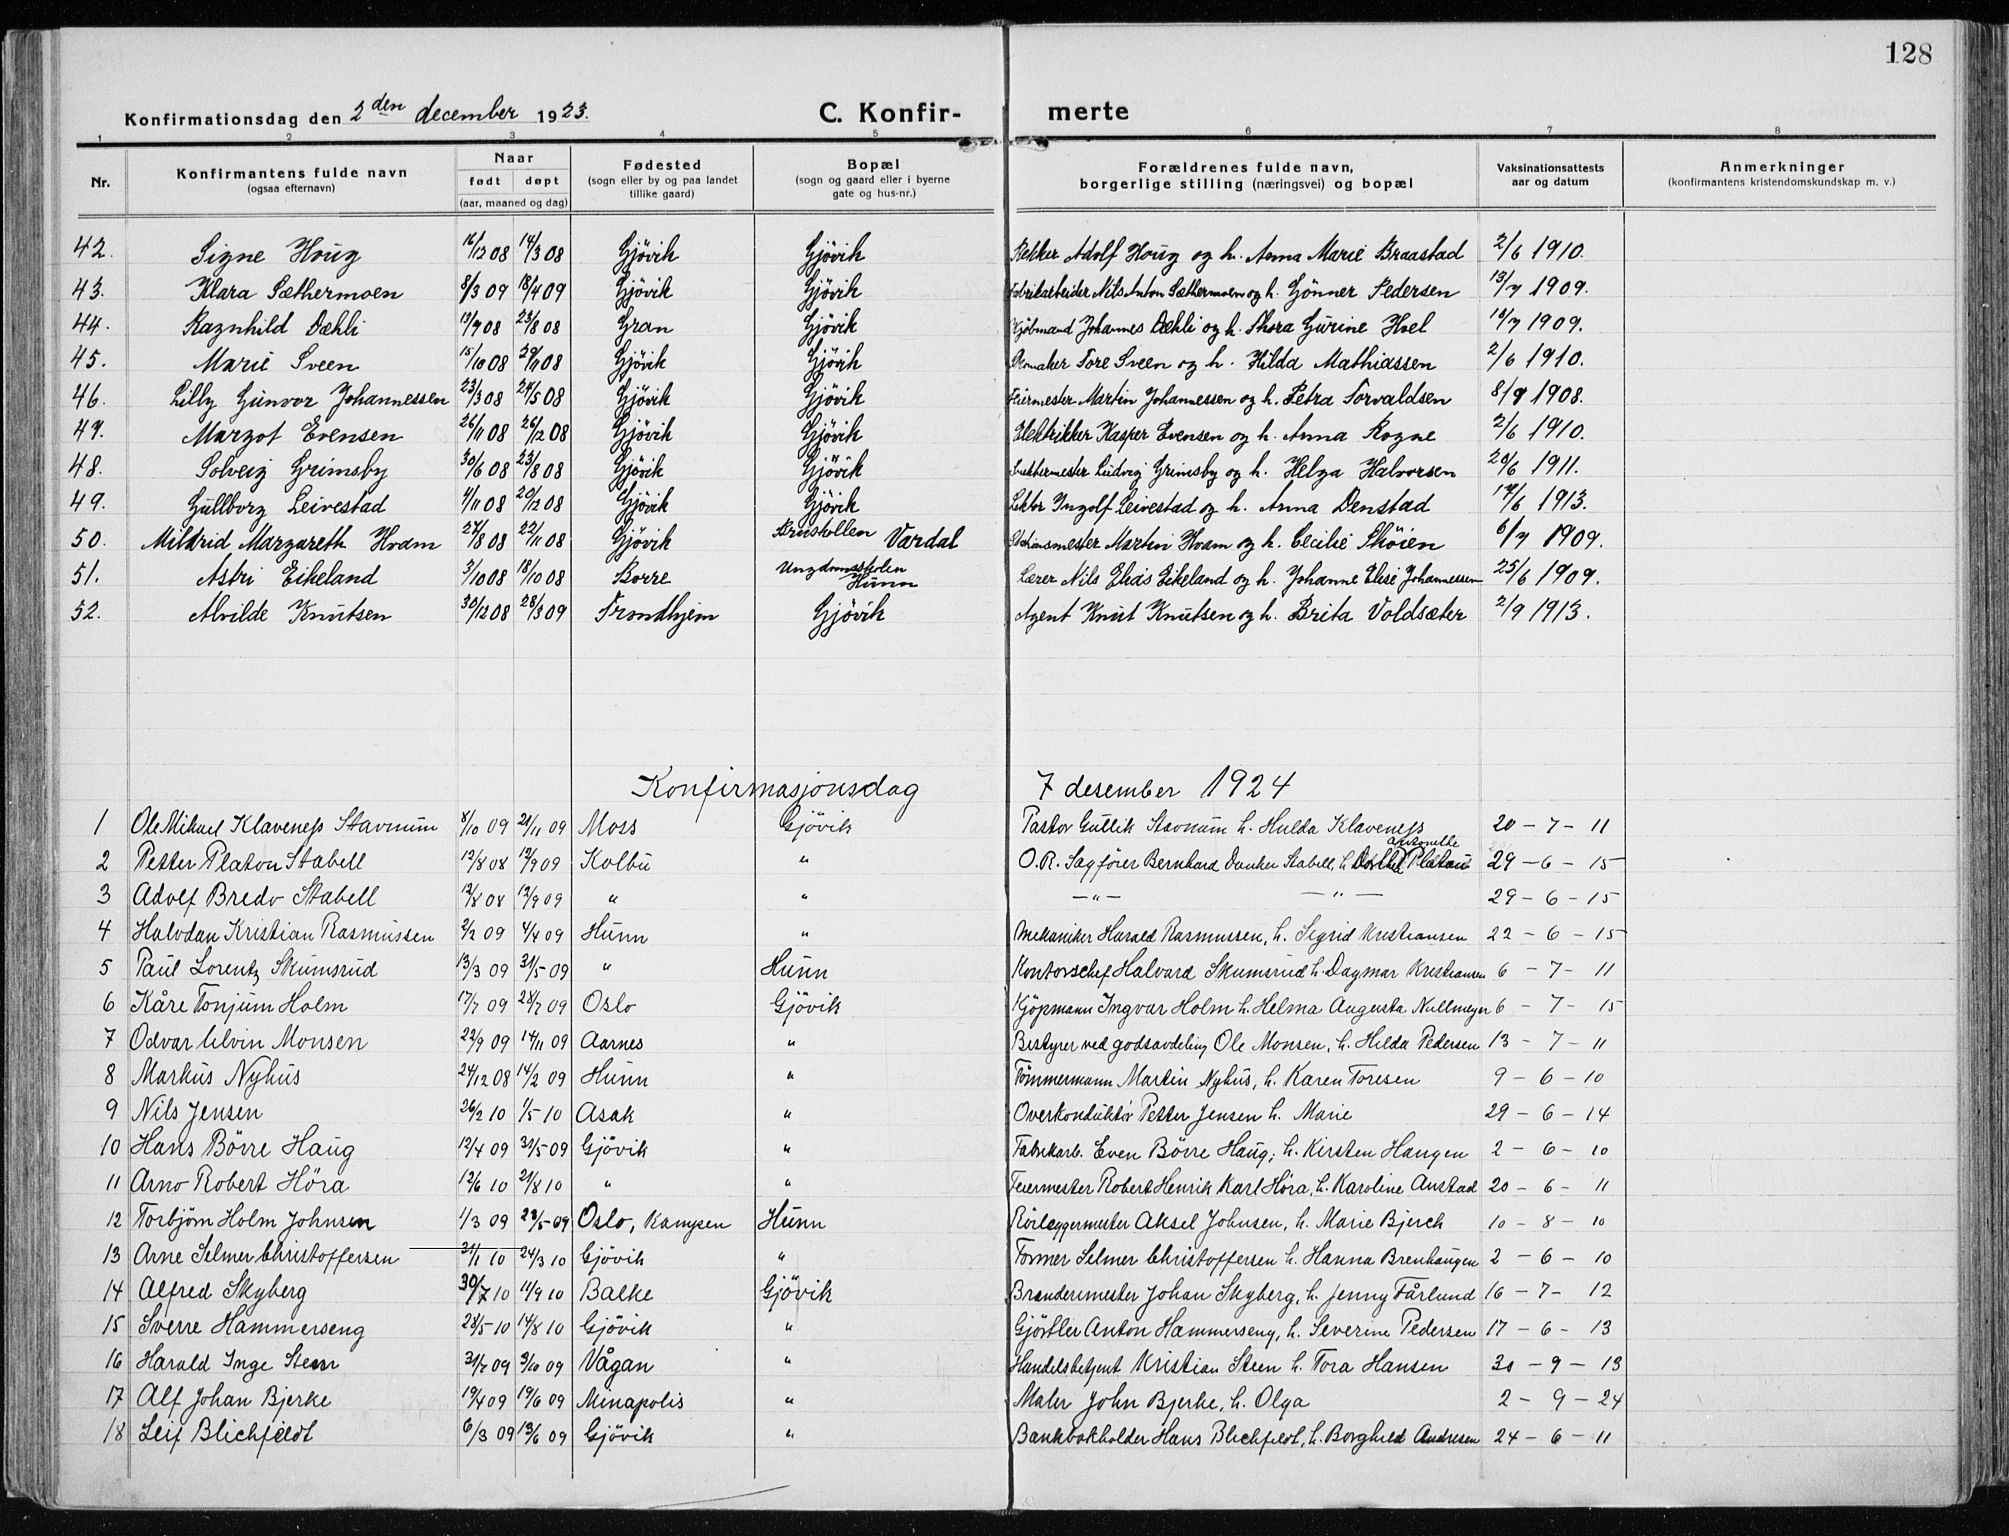 128
Konfirmationsdag den 2den december 1923. C. Konfir- merte
1 2 3 4 5 6 7 8
Nr. Konfirmantens fulde navn (ogsaa efternavn) Naar født døpt (aar, maaned og dag) Fødested (sogn eller by og paa landet tillike gaard) Bopæl (sogn og gaard eller i byerne gate og hus-nr.) Forældrenes fulde navn, borgerlige stilling (næringsvei) og bopæl Vaksinationsattests aar og datum Anmerkninger (konfirmantens kristendomskundskap m. v.)
42. Signe Houg 16/12 08 14/3 08 Gjövik Gjövik Adolf Houg og h. Anna Marie Braastad 2/6 1910.
43. Klara Sæthermoen 8/3 09 18/4 09 Gjövik Gjövik Fabrikarbeider Nils Anton Sæthermoen og h. Gönner Pedersen 13/7 1909.
44. Ragnhild Dæhli 13/7 08 23/8 08 Gran Gjövik Kjöbmand Johannes Dæhli og h. Thora Gurine Hoel 1909.
45. Marie Sveen 15/10 08 29/11 08 Gjövik Gjövik Tore Sveen og h. Hilda Mathiassen 2/6 1910.
46. Lilly Gunvor Johannessen 23/3 08 24/5 08 Gjövik Gjövik Feiermester Martin Johannessen og h. Petra Torvaldsen 8/9 1908.
47. Margot Evensen 26/11 08 26/12 08 Gjövik Gjövik Elektrikker Kasper Evensen og h. Anna Rogne 2/6 1910.
48. Solveig Grimsby 30/6 08 23/8 08 Gjövik Gjövik Snekkermester Ludvig Grimsby og h. Helga Halvorsen 20/6 1911.
49. Gullborg Leivestad 4/11 08 20/12 08 Gjövik Gjövik Lektor Ingolf Leivestad og h. Anna Denstad 17/6 1913.
50. Mildrid Margareth Hvam 27/8 08 22/11 08 Gjövik Vardal Stationsmester Martin Hvam og h. Cecilie Sköien 6/7 1909.
51. Astri Eikeland 3/10 08 18/10 08 Borre Ungdomsskolen Hunn Lærer Nils Elias Eikeland og h. Johanne Elise Johannessen 25/6 1909.
52. Alvilde Knutsen 30/12 08 28/3 09 Trondhjem Gjövik Agent Knut Knutsen og h. Brita Voldsæter 2/9 1913.
Konfirmasjonsdag 7 desember 1924
1 Ole Mikael Klaveness Stavnum 8/10 09 21/11 09 Moss Gjövik Pastor Gullik Stavnum h. Hulda Klaveness 20 - 7 - 11
2 Petter Platou Stabell 12/8 08 12/9 09 Kolbu " O.R. Sagförer Bernhard Danker Stabell, h. Dorthea Antonette Platou 29 - 6 - 15
3 Adolf Bredo Stabell 12/8 08 12/9 09 " " —"— —"— 29 - 6 - 15
4 Halvdan Kristian Rasmussen 2/2 09 4/4 09 Hunn " Mekaniker Harald Rasmussen, h. Sigrid Kristiansen 22 - 6 - 15
5 Paul Lorentz Skumsrud 13/3 09 31/5 09 " Hunn Kontorschef Halvard Skumsrud h. Dagmar Kristiansen 6 - 7 - 11
6 Kåre Tonjum Holm 17/7 09 28/7 09 Oslo Gjövik Kjöpmann Ingvar Holm h. Helma Augusta Nullmeyer 6 - 7 - 15
7 Odvar Elvin Monsen 22/9 09 14/11 09 Aarnes " Bestyrer ved godsavdeling Ole Monsen, h. Hilda Pedersen 13 - 7 - 11
8 Markus Nyhus 24/12 08 14/2 09 Hunn " Tömmermann Martin Nyhus, h. Karen Toresen 9 - 6 - 10
9 Nils Jensen 26/2 10 1/5 10 Asak " Overkonduktör Petter Jensen h. Marie 29 - 6 - 14
10 Hans Börre Haug 12/4 09 31/5 09 Gjövik " Fabrikarb. Even Börre Haug, h. Kirsten Haugen 2 - 6 - 10
11 Arno Robert Höra 12/6 10 21/8 10 " " Feiermester Robert Henrik Karl Höra, h. Karoline Anstad 20 - 6 - 11
12 Torbjörn Holm Johnsen 1/3 09 23/5 09 Oslo, Kampen Hunn Rörleggermester Aksel Johnsen, h. Marie Bjerch 10 - 8 - 10
13 Arne Selmer Christoffersen 21/1 10 24/3 10 Gjövik " Former Selmer Christoffersen h. Hanna Brenhaugen 2 - 6 - 10
14 Alfred Skyberg 30/7 10 11/9 10 Balke Gjövik Brandermester Johan Skyberg, h. Jenny Fårlund 16 - 7 - 12
15 Sverre Hammerseng 28/5 10 14/8 10 Gjövik " Gjörtler Anton Hammerseng, h. Severine Pedersen 17 - 6 - 13
16 Harald Inge Steen 31/7 09 3/10 09 Vågan " Handelsbetjent Kristian Steen h. Tora Hansen 30 - 9 - 13
17 Alf Johan Bjerke 19/4 09 19/6 09 Minapolis " Maler John Bjerke, h. Olga 2 - 9 - 24
18 Leif Blichfeldt 6/3 09 13/6 09 Gjövik " Bankbokholder Hans Blichfeldt, h. Borghild Andresen 24 - 6 - 11